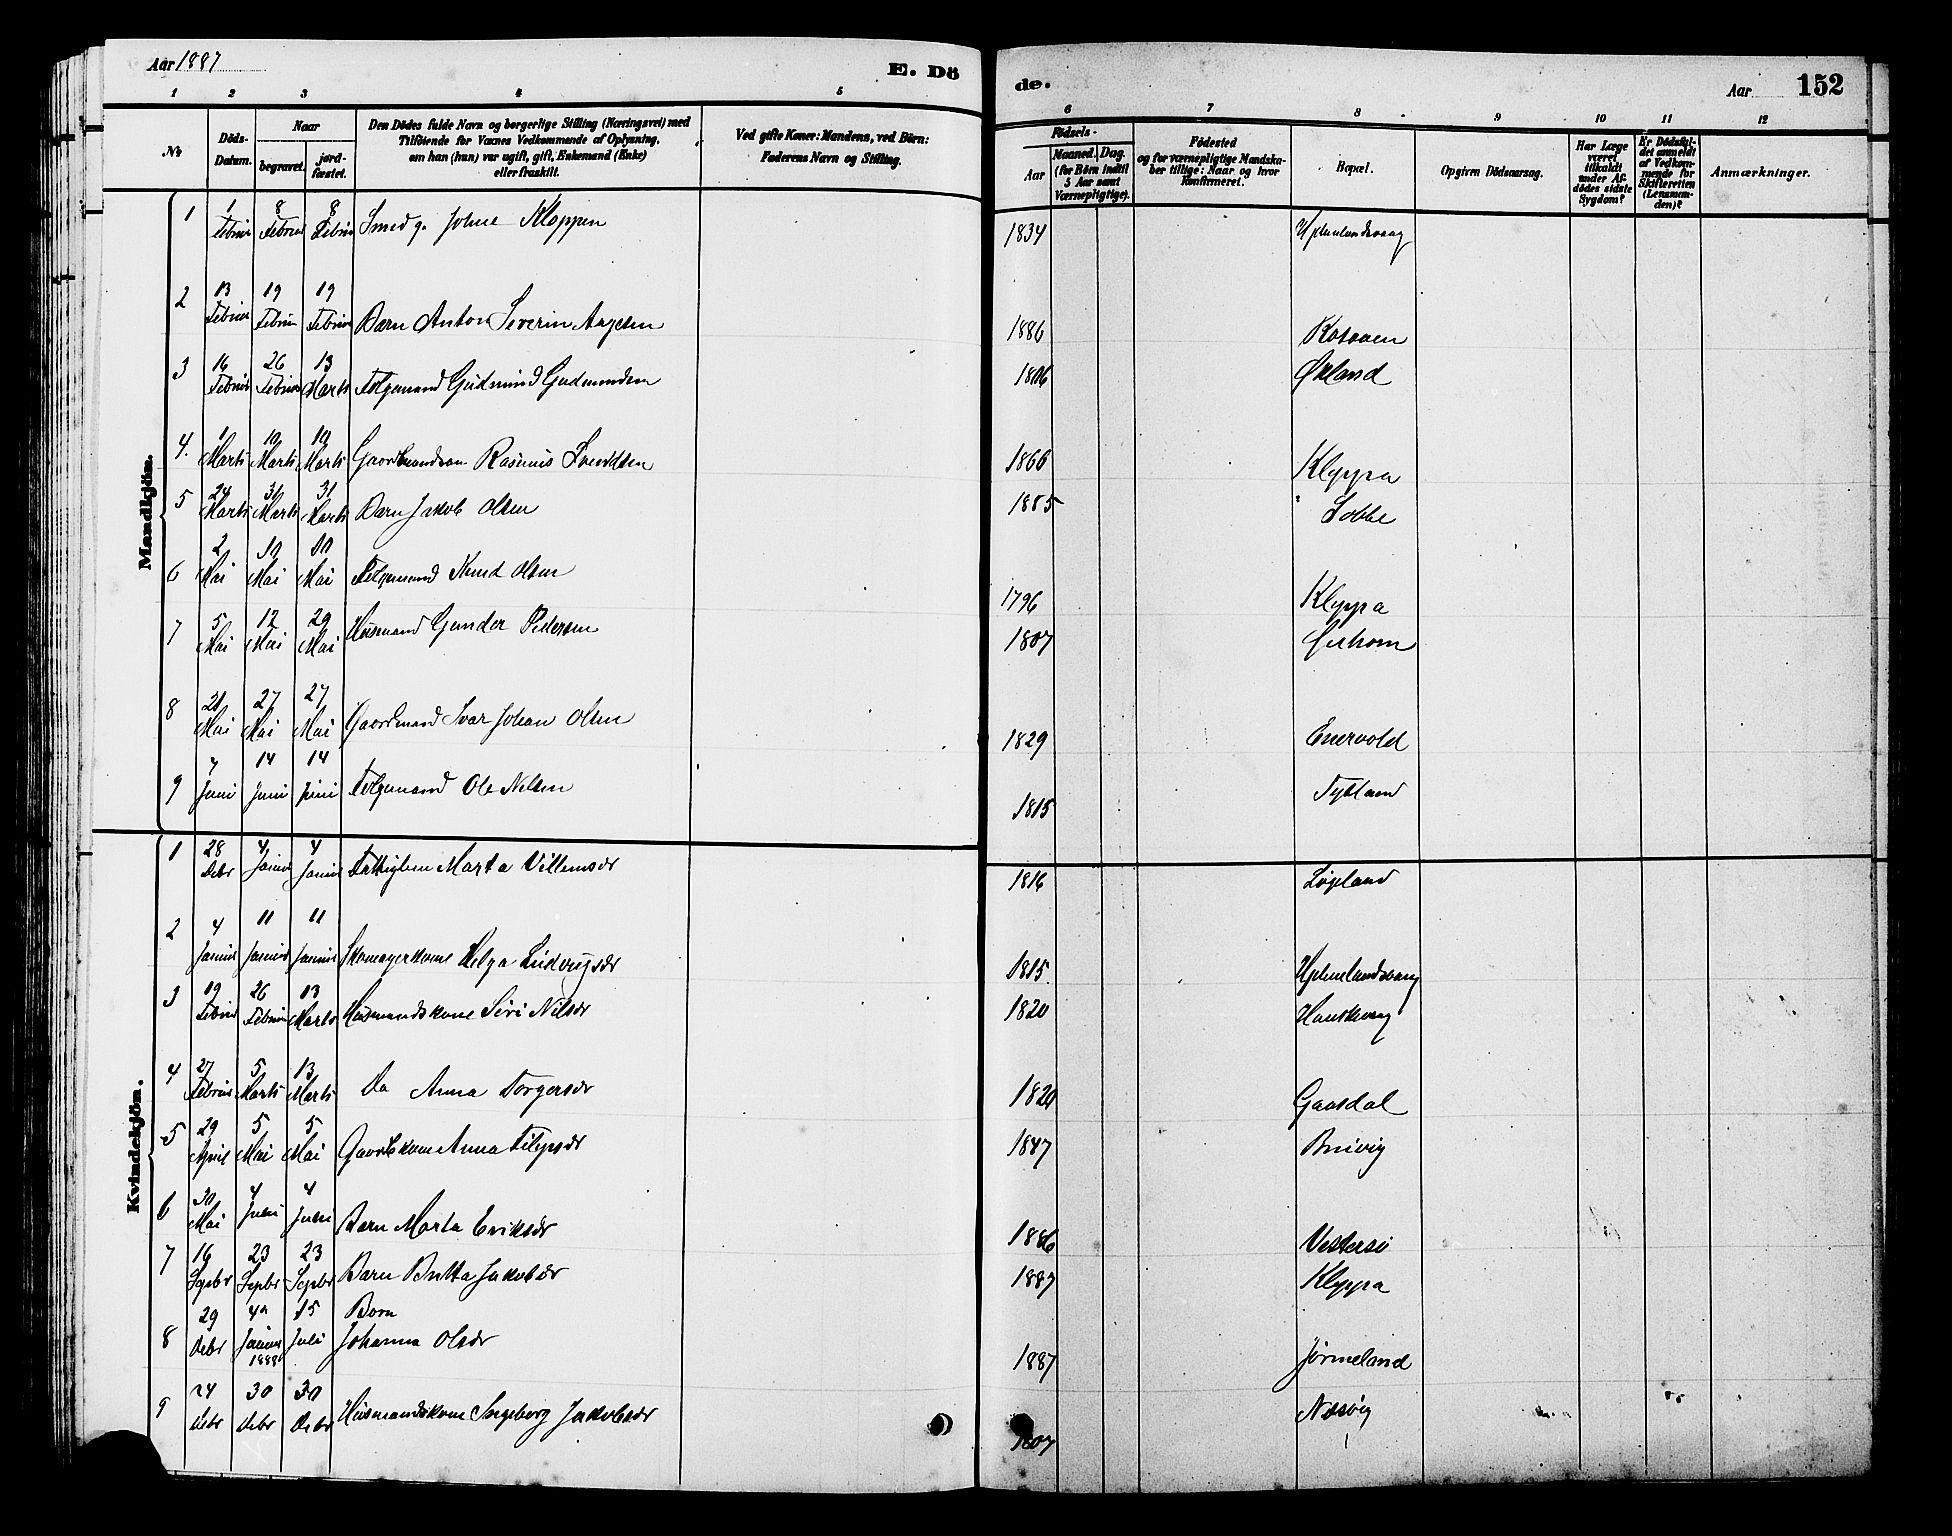 Aar 1887
E. Dö
de.
Aar 152
1 2 3 4 5 6 7 8 9 10 11 12
No
Döds-Datum.
Naar
begravet.
jord-fæstet.
Den Dödes fulde Navn og borgerlige Stilling (Næringsvei) med
Tilföiende for Voxnes Vedkommende af Oplysning,
om han (hun) var ugift, gift, Enkemand (Enke)
eller fraskilt.
Ved gifte Koner: Mandens, ved Börn:
Faderens Navn og Stilling.
Födsels-
Aar
Maaned. Dag.
(for Börn indtil
5 Aar samt
Værnepligtige).
Födested
og for værnepligtige Mandska-
ber tillige: Naar og hvor
konfirmeret.
Bopæl.
Opgiven Dödsaarsag.
Har Læge
været
tilkaldt
under Af-
dödes sidste
Sygdom?
Er Dödsfal-
det anmeldt
af Vedkom-
mende for
Skifteretten
(Lensman-
den)?
Anmærkninger.
Mandkjön.
1 1 Februar 8 Februar 8 Februar Smed g. Johne Kloppen 1834
2 13 Februar 19 Februar 19 Februar Barn Anton Severin 1886
3 16 Februar 26 Februar 13 Marts Følgemand Gudmund Gudmundsen 1806 Økland
4. 1 Marts 10 Marts 10 Marts Gaardmandsøn Rasmus 1866 Kleppa
5 24 Marts 31 Marts 31 Marts Barn Jakob Olsen 1885
6 2 Mai 10 Mai 10 Mai Følgemand Knud Olsen 1796 Kleppa
7 5 Mai 12 Mai 29 Mai Husmand Gunder Pedersen 1807
8 21 Mai 27 Mai 27 Mai Gaardmand Ivar Johan Olsen 1829 Enervold
9 7 Juni 14 Juni 14 Juni Følgemand Ole Nilsen 1815 Tytland
Kvindekjön.
1 28 Debr 4 Januar 4 Januar Fattiglem Marta Villumsdr 1816
2 4 Januar 11 Januar 11 Januar Skomagerkone Helga Ludvigsdr 1815.
3 19 Februar 26 Februar 13 Marts Husmandskone Siri Nilsdr 1820
4 27 Februar 5 Marts 13 Marts Do Anna Torgersdr 1820 Gaasdal
5 29 April 5 Mai 5 Mai Gaardbkone Anna 1847
6 30 Mai 4 Juli 4 Juli Barn Marta Eriksdr 1886 Vestersø
7 16 Sepbr 23 Sepbr 23 Sepbr Barn Britta Jakobsdr 1887 Kleppa
8 29 Debr 4 Januar 1888 15 Juli Barn
Johanna Olsdr 1887 Jørmeland
9 24 Debr 30 Debr 30 Debr Husmandskone Ingeborg Jakobsdr 1807 Nesvig